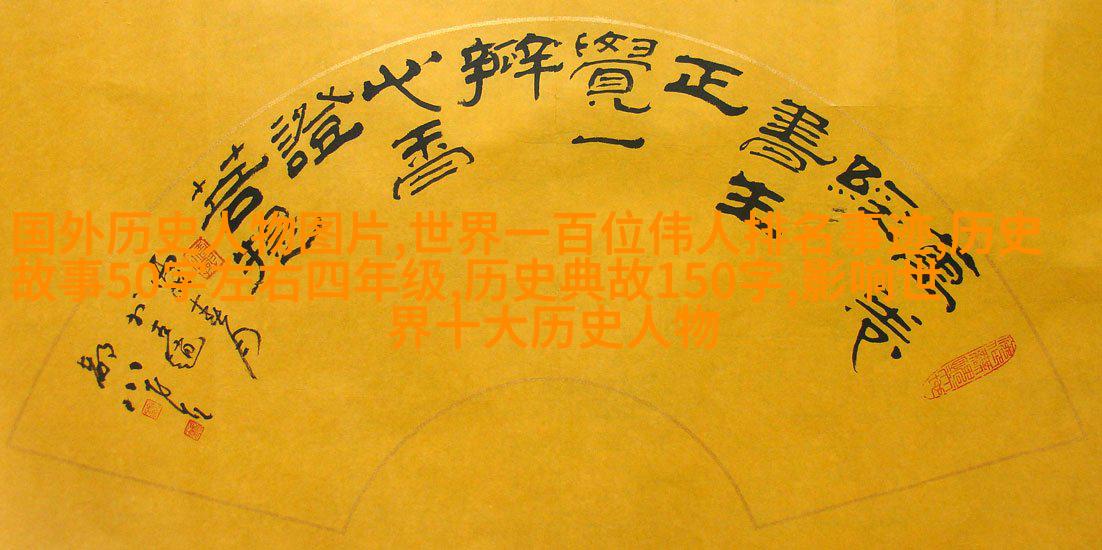 萬卷
經
書求
正
覺一
瓣
心香
證
菩提
国外历史人物图片,世界一百位伟人排名事迹,历史
故事50字左右四年级,历史典故150字,影响世
界十大历史人物